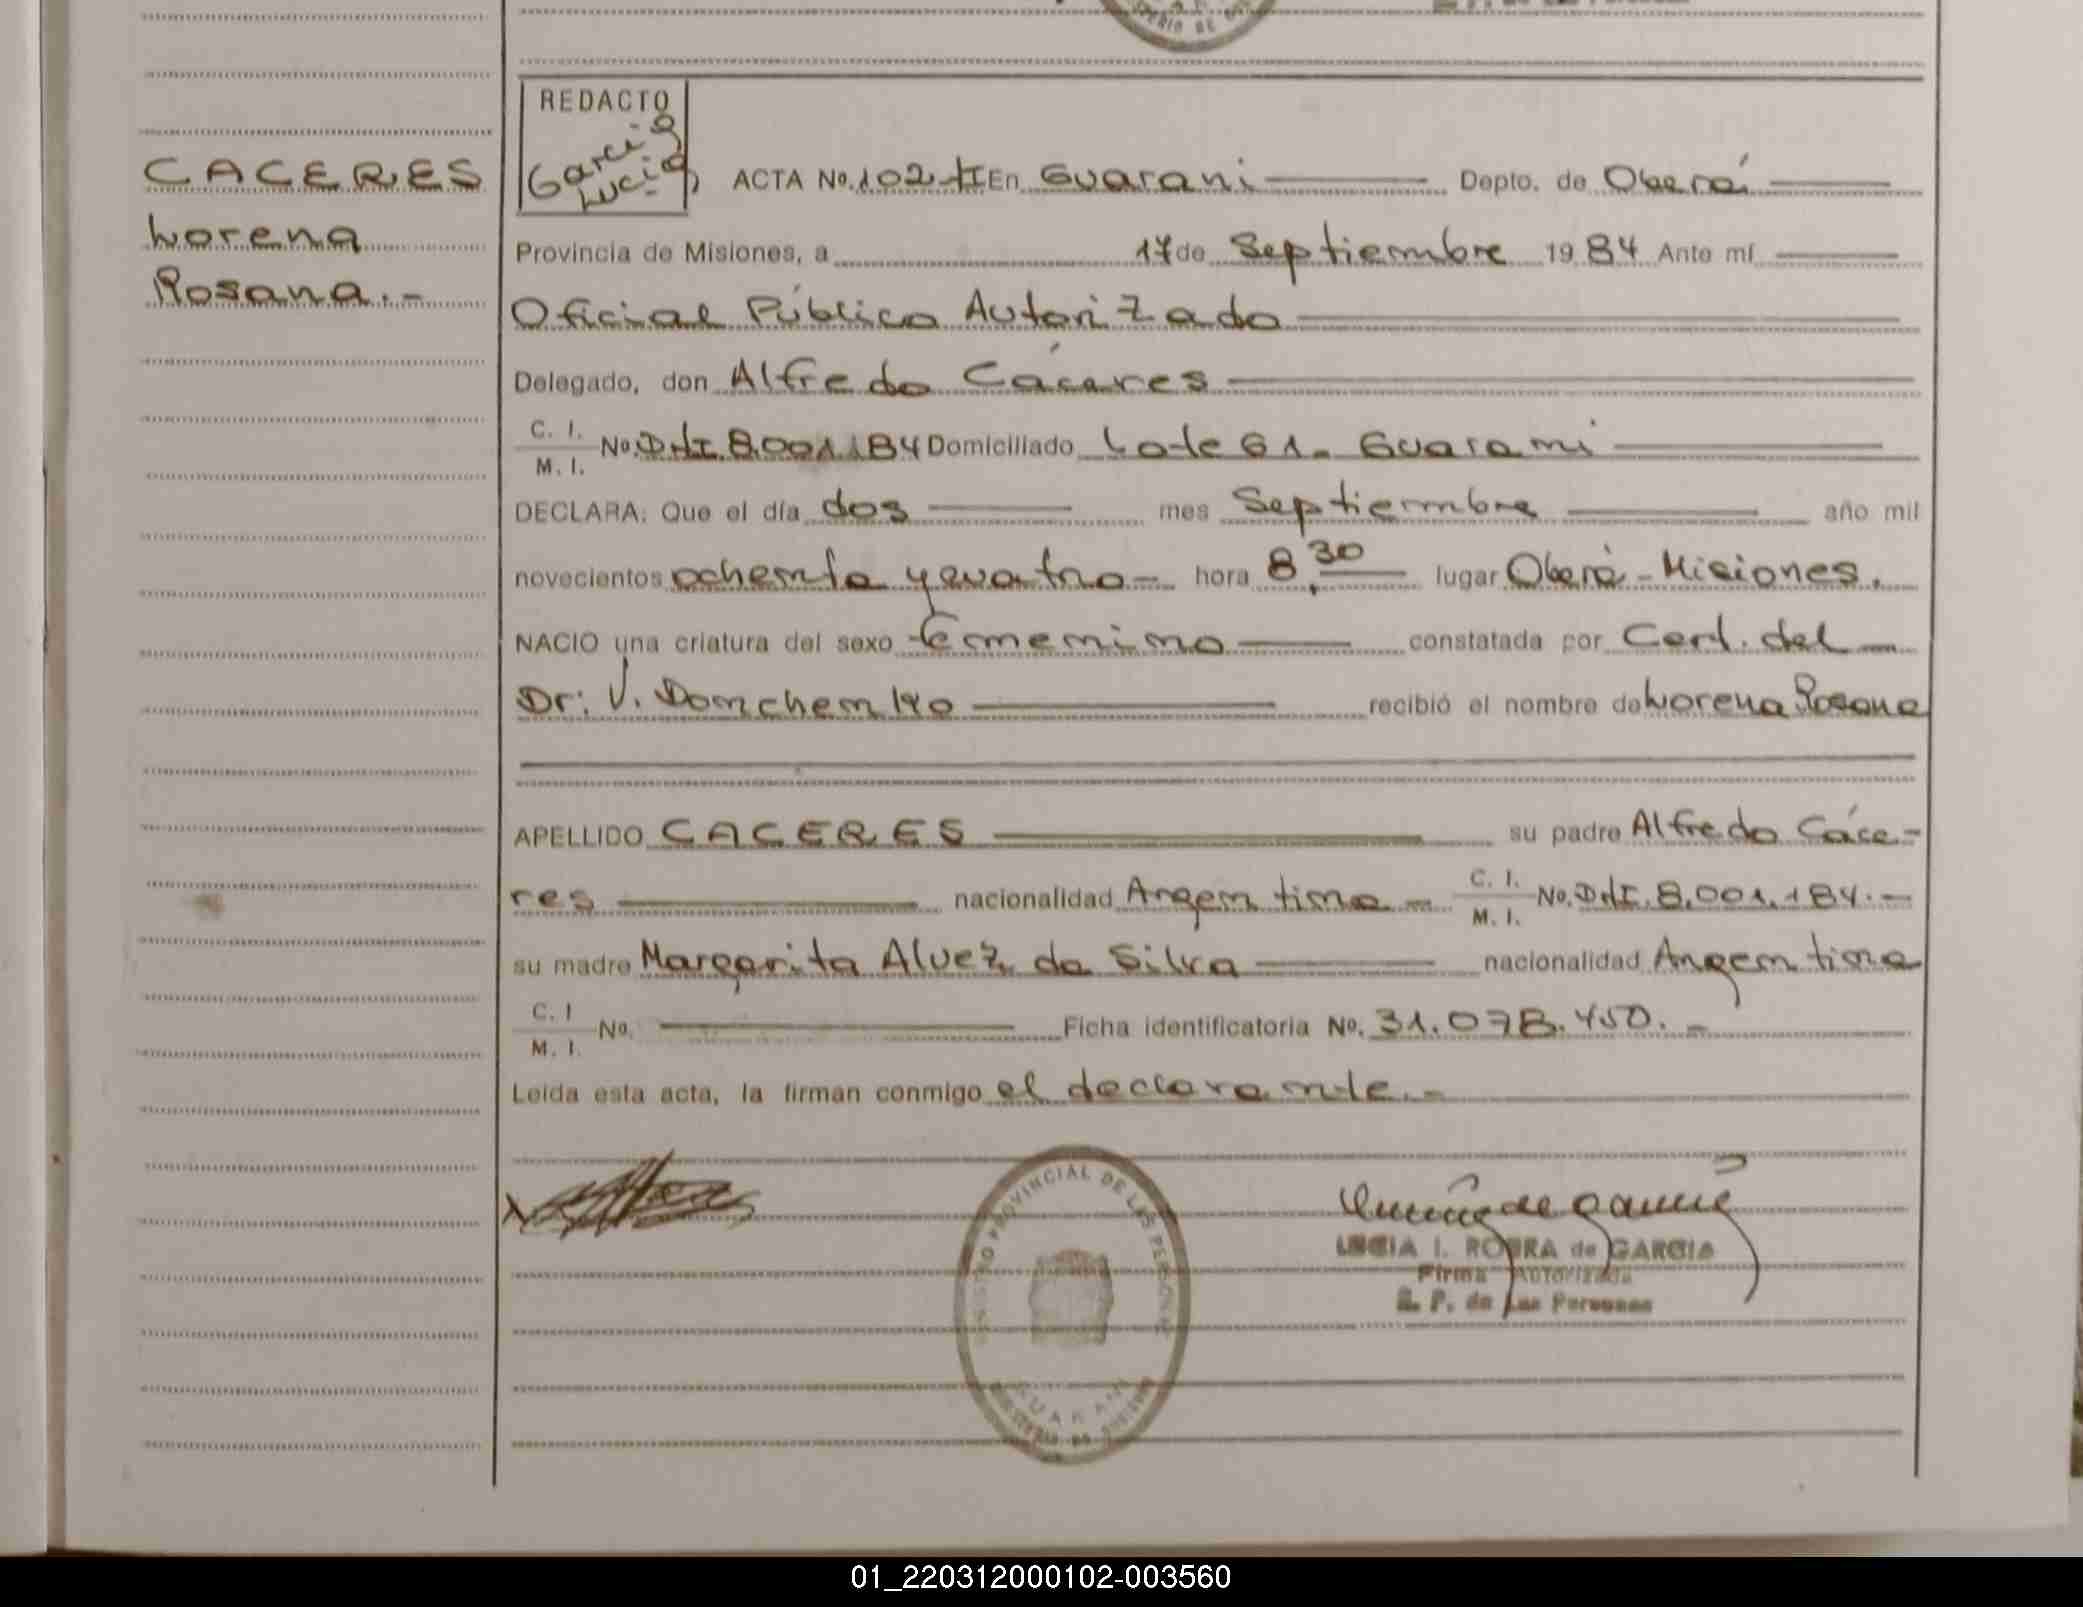 REDACTO
Garcia
Lucia
CACERES
Lorena
Rosana.-
ACTA No. 102-II En Guarani Depto. de Oberá
Provincia de Misiones, a 17 de Septiembre 1984 Ante mí
Oficial Público Autorizado
Delegado, don Alfredo Cáceres
C. I.
M. I. No. D.N.I. 8.001.184 Domiciliado Lote 61- Guarani
DECLARA: Que el día dos mes Septiembre año mil
novecientos ochenta y cuatro- hora 8,30 lugar Oberá-Misiones.
NACIO una criatura del sexo femenino constatada por Cert. del
Dr: V. Donchenko recibió el nombre de Lorena Rosana
APELLIDO CACERES su padre Alfredo Cáce-
res nacionalidad Argentina - C. I.
M. I. No. D.N.I. 8.001.184.-
su madre Margarita Alvez da Silva nacionalidad Argentina
C. I
M. I. No. Ficha identificatoria No. 31.078.450.-
Leida esta acta, la firman conmigo el declarante.-
PROVINCIAL DE LAS PERSONAS
GUARANI
LUCIA I. ROBRA de GARCIA
Firma Autorizada
R. P. de Las Personas
01_220312000102-003560